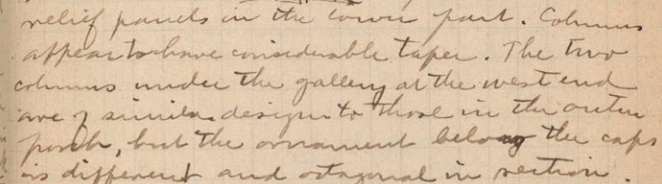 relief panels in the lower part. Columns
appear to have considerable taper. The two
columns under the gallery at the west end
are of similar design to those in the outer
porch, but the ornament below the caps
is different and octagonal in section.